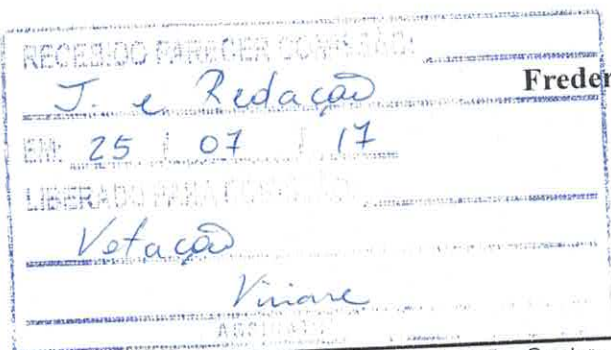 RECEBIDO PARECER COMISSÃO:
J. e Redação
Freder
EM: 25 / 07 / 17
LIBERADO PARA
Votação
Viviane